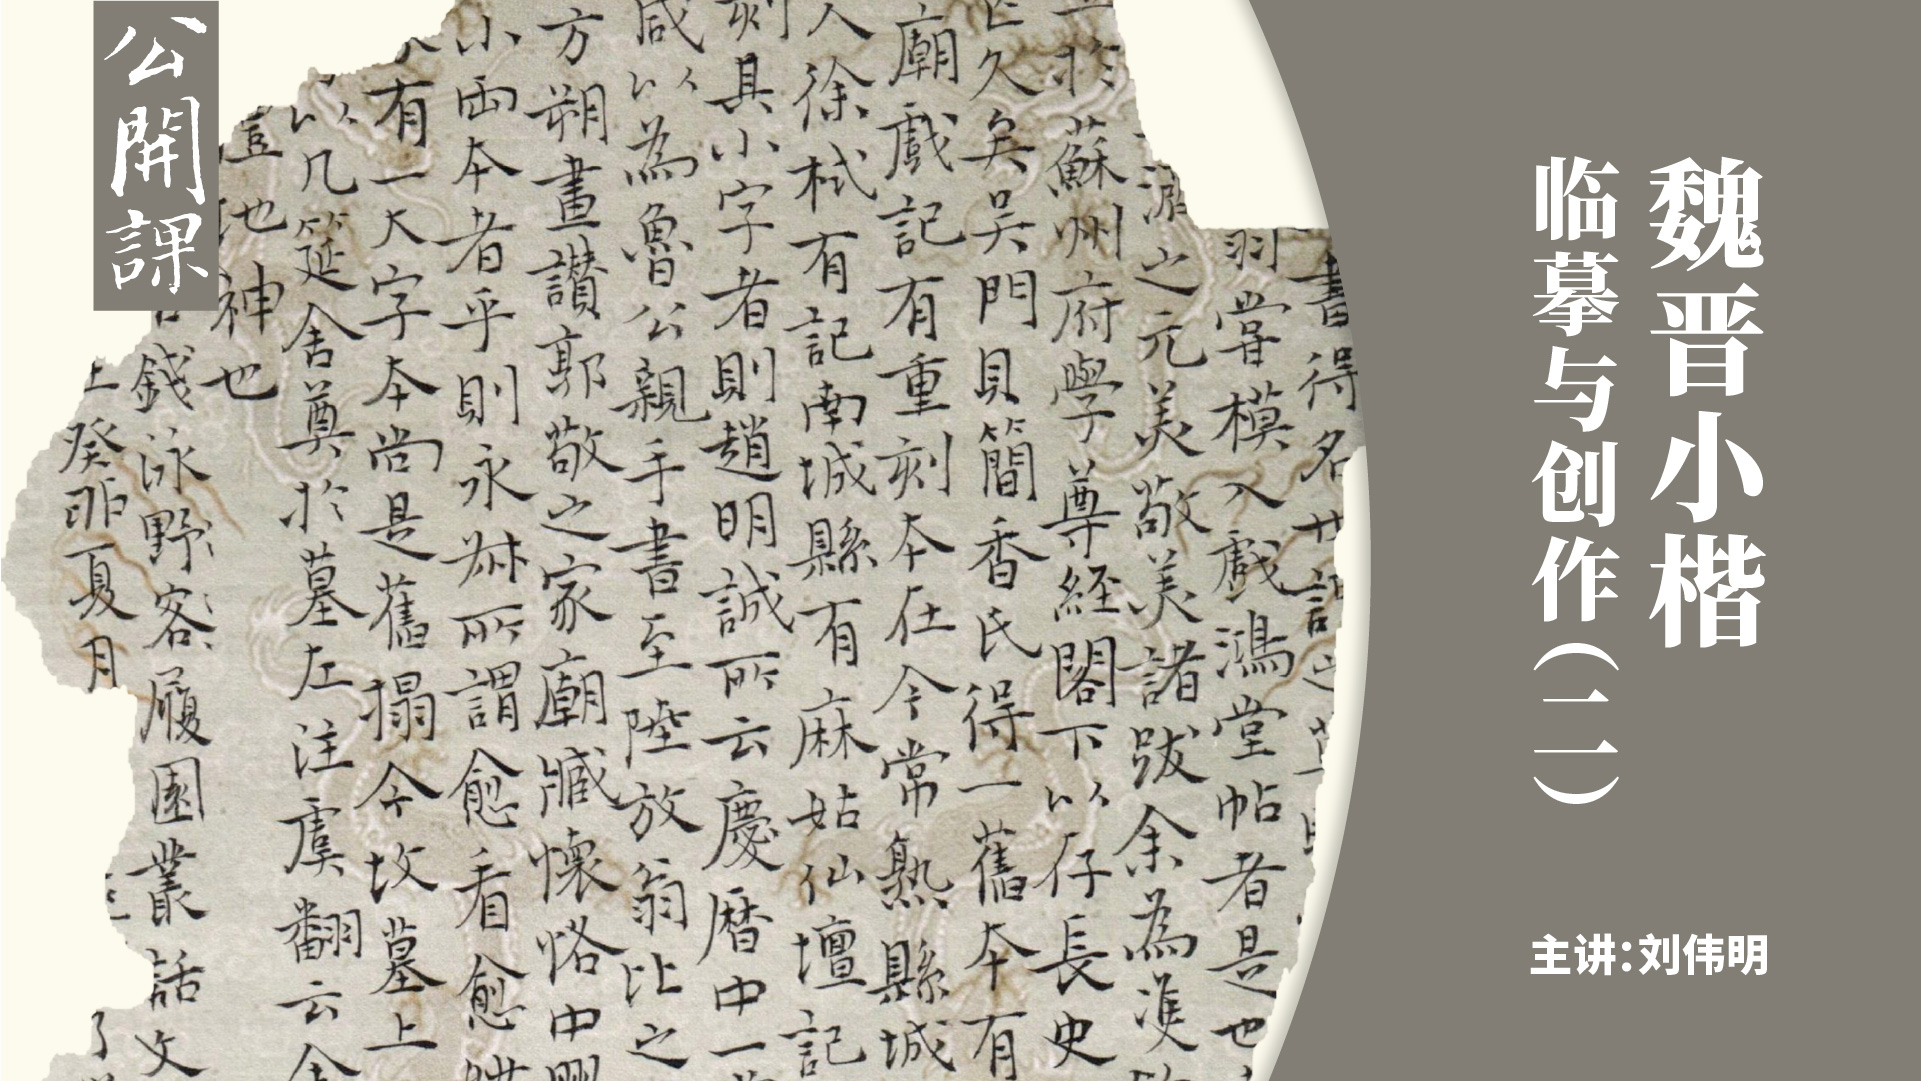 公開課
魏晋小楷
临摹与创作(二)
主讲:刘伟明
書得名廿記之
羽嘗模入戲鴻堂帖者是也
之元美敬美諸跋余為
於蘇州府學尊經閣下以仔長史
久矣吳門貝簡香氏得一舊本有
廟戲記有重刻本在今常熟縣城
人徐栻有記南城縣有麻姑仙壇記
刻具小字者則趙明誠所云慶曆中一
咸以為魯公親手書至陸放翁比之
方朔畫讃郭敬之家廟臧懷恪中興
小兩本者乎則永叔所謂愈看愈
有一大字本尚是舊搨今坟墓上
以几筵舍奠於墓左注虞翻云
豈地神也
錢泳野客履園叢話文
癸卯夏月